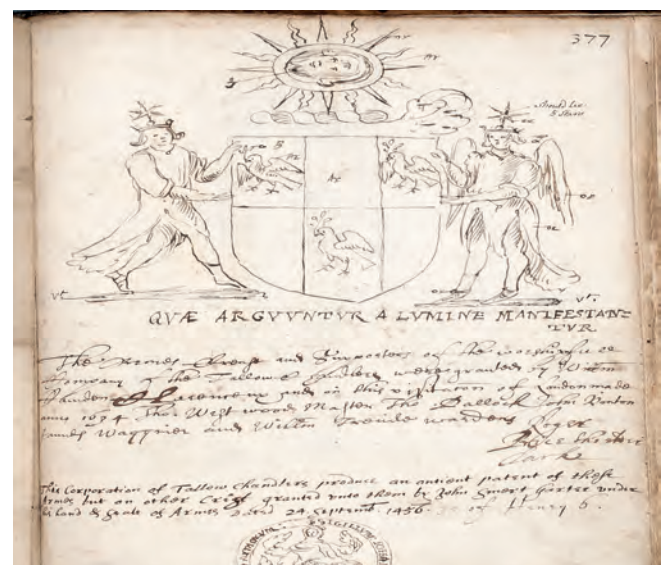 377
should be
5 starrs
QUÆ ARGVVNTVR A LVMINE MANIFESTAN
TVR
The Armes Creast and Supporters of the worshipfull
Company of the Tallowe Chandlers were granted by
and in this visitation of London made
anno 1634 Master Tho Ballock John
James and Willm wardens Roger
Clark
This Corporation of Tallow Chandlers produce an antient patent of those
Armes but an other Crest granted unto them by John Smert Garter under
his hand & Seale of Armes Dated 24 Septemb. 1456. 35 of Henry 6.